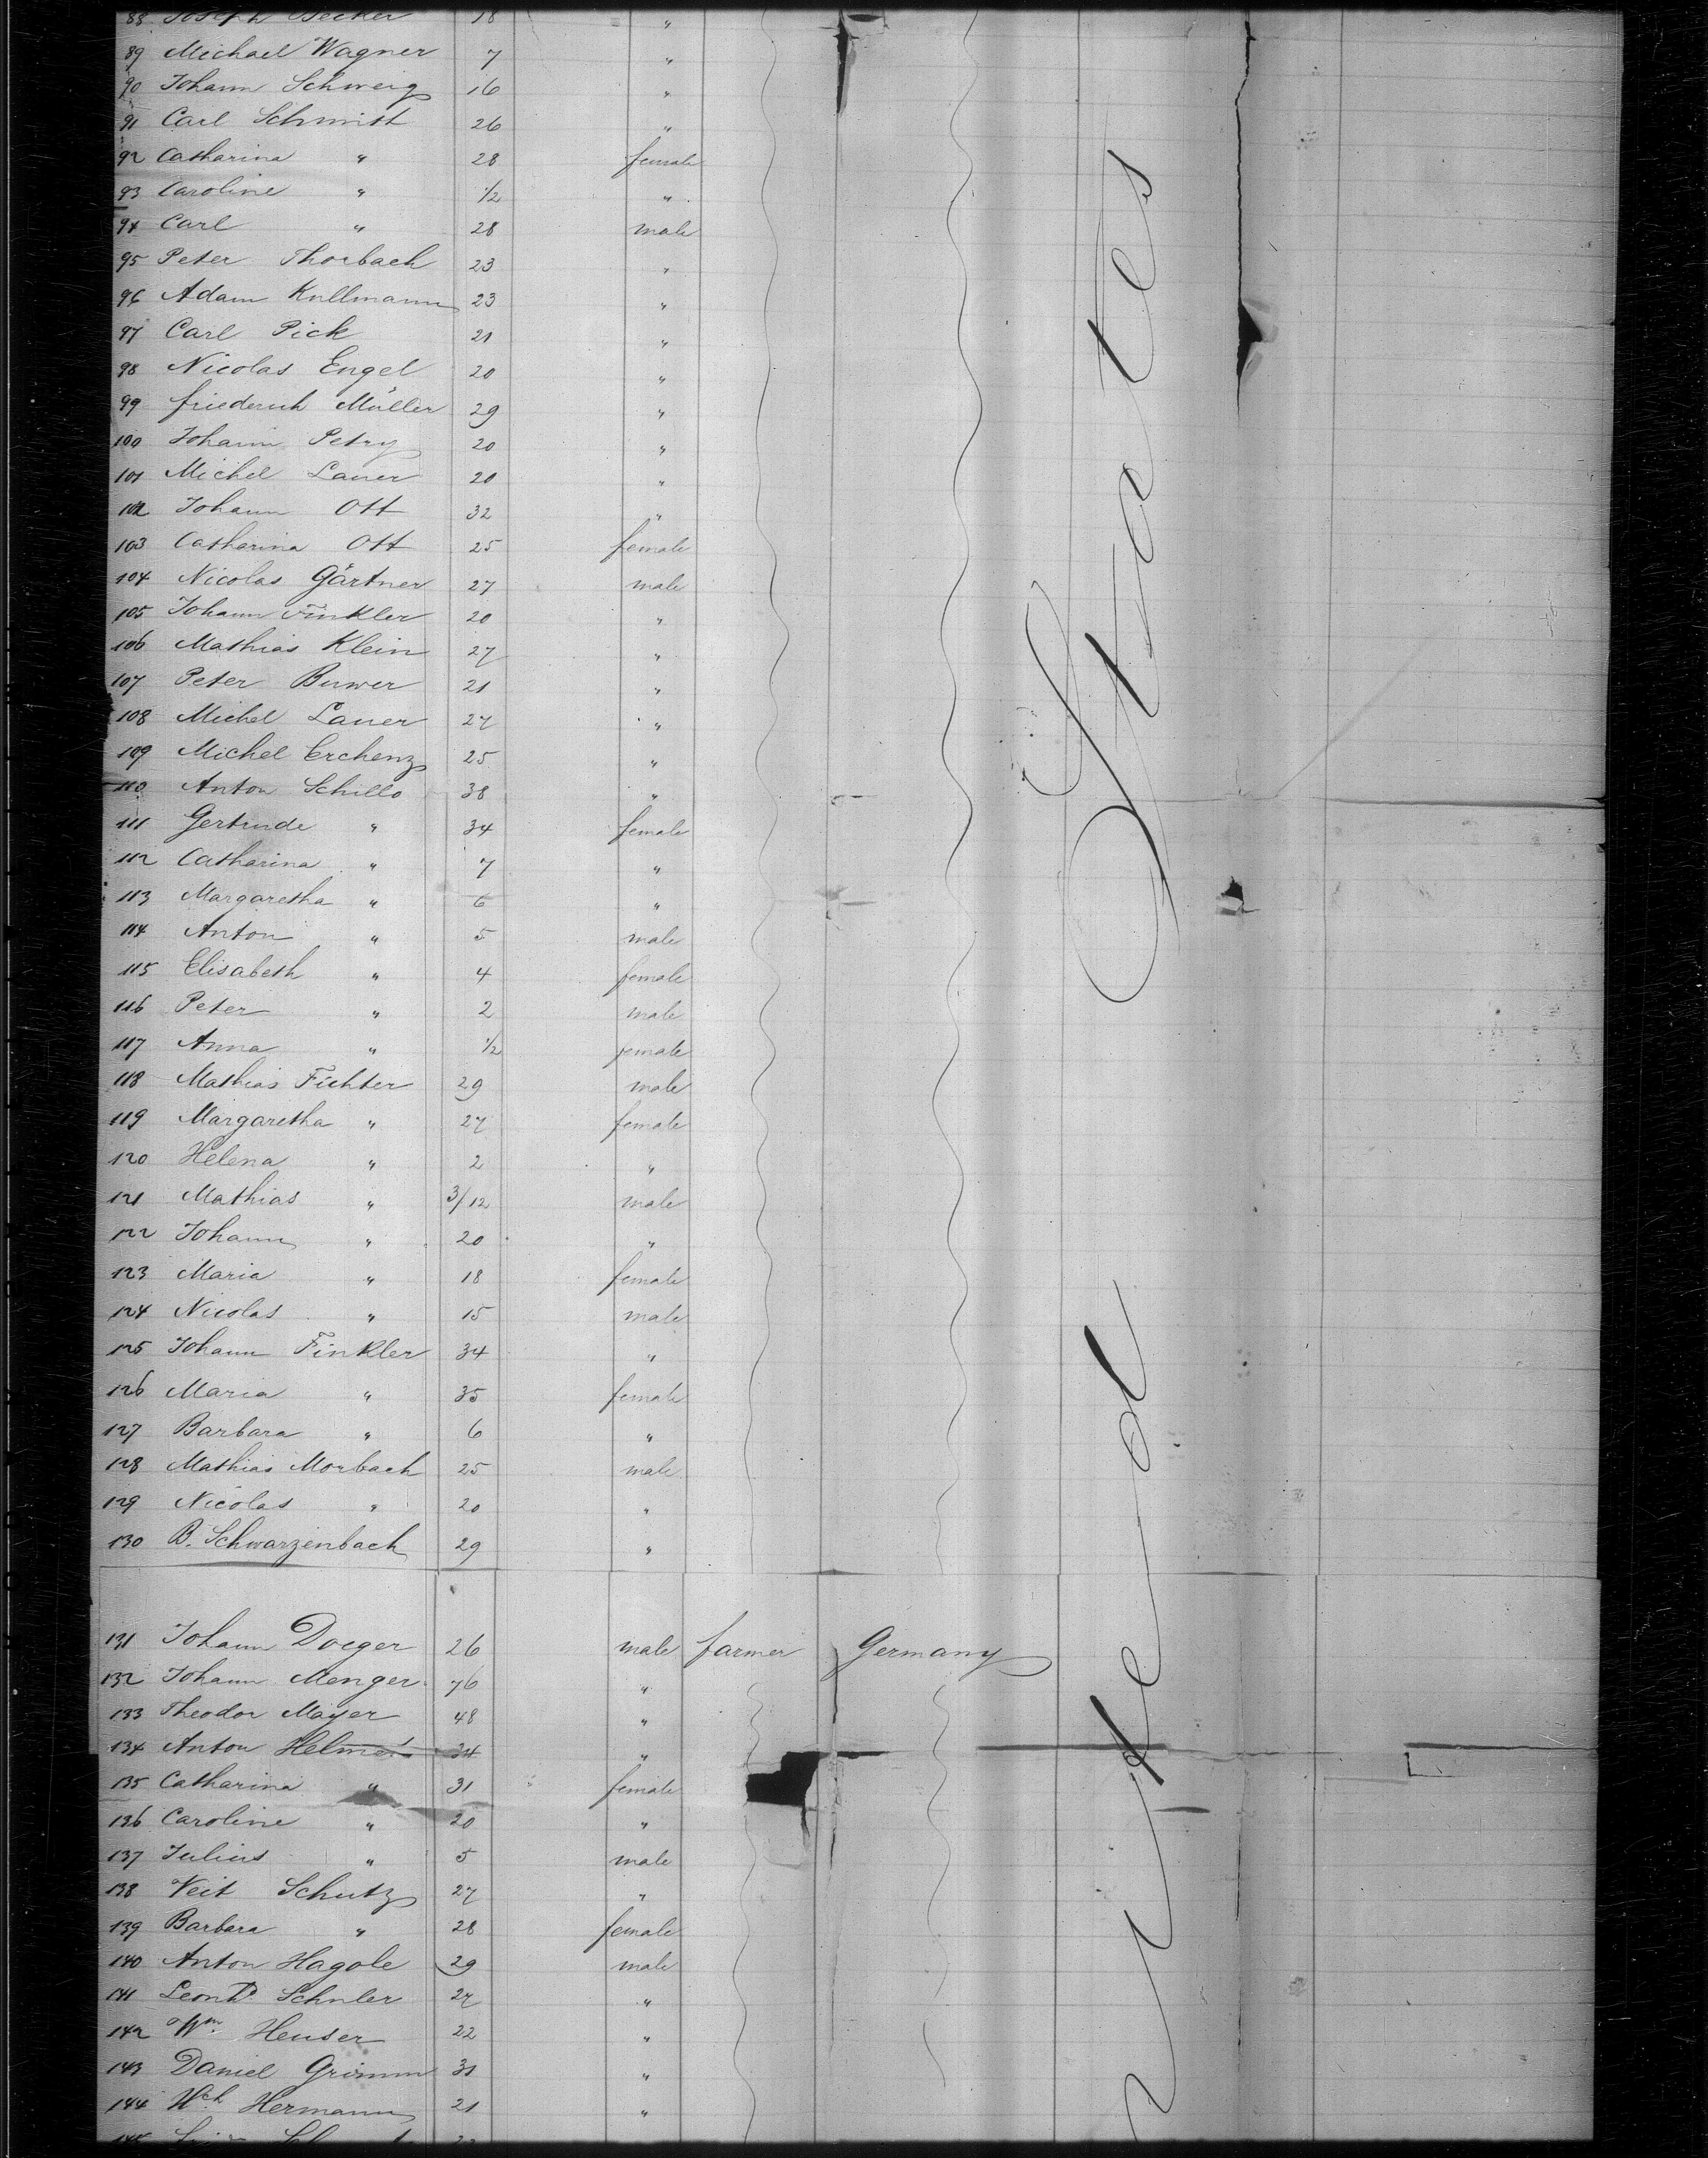 88 Joseph Becker 18 "
89 Michael Wagner 7 "
90 Johann Schweig 16 "
91 Carl Schmist 26 "
92 Catharina " 28 female
93 Caroline " 1/2 "
94 Carl " 28 male
95 Peter Thorbach 23 "
96 Adam Kullmann 23 "
97 Carl Pick 21 "
98 Nicolas Engel 20 "
99 friederich Müller 29 "
100 Johann Petry 20 "
101 Michel Lauer 20 "
102 Johann Ott 32 "
103 Catharina Ott 25 female
104 Nicolas Gärtner 27 male
105 Johann Finkler 20 "
106 Mathias Klein 27 "
107 Peter Buwer 21 "
108 Michel Lauer 27 "
109 Michel Erchenz 25 "
110 Anton Schillo 38 "
111 Gertrude " 34 female
112 Catharina " 7 "
113 Margaretha " 6 "
114 Anton " 5 male
115 Elisabeth " 4 female
116 Peter " 2 male
117 Anna " 1/2 female
118 Mathias Fichter 29 male
119 Margaretha " 27 female
120 Helena " 2 "
121 Mathias " 3/12 male
122 Johann " 20 "
123 Maria " 18 female
124 Nicolas " 15 male
125 Johann Finkler 34 "
126 Maria " 35 female
127 Barbara " 6 "
128 Mathias Morbach 25 male
129 Nicolas " 20 "
130 B. Schwarzenbach 29 "
131 Johann Doeger 26 male farmer Germany
132 Johann Menger 76 "
133 Theodor Mayer 48 "
134 Anton Helmers 34 "
135 Catharina " 31 female
136 Caroline " 20 "
137 Julius " 5 male
138 Veit Schutz 27 "
139 Barbara " 28 female
140 Anton Hagole 29 male
141 Leonh. Schuler 27 "
142 Wm. Heuser 22 "
143 Daniel Grimm 31 "
144 Hch. Hermann 21 "
145
States